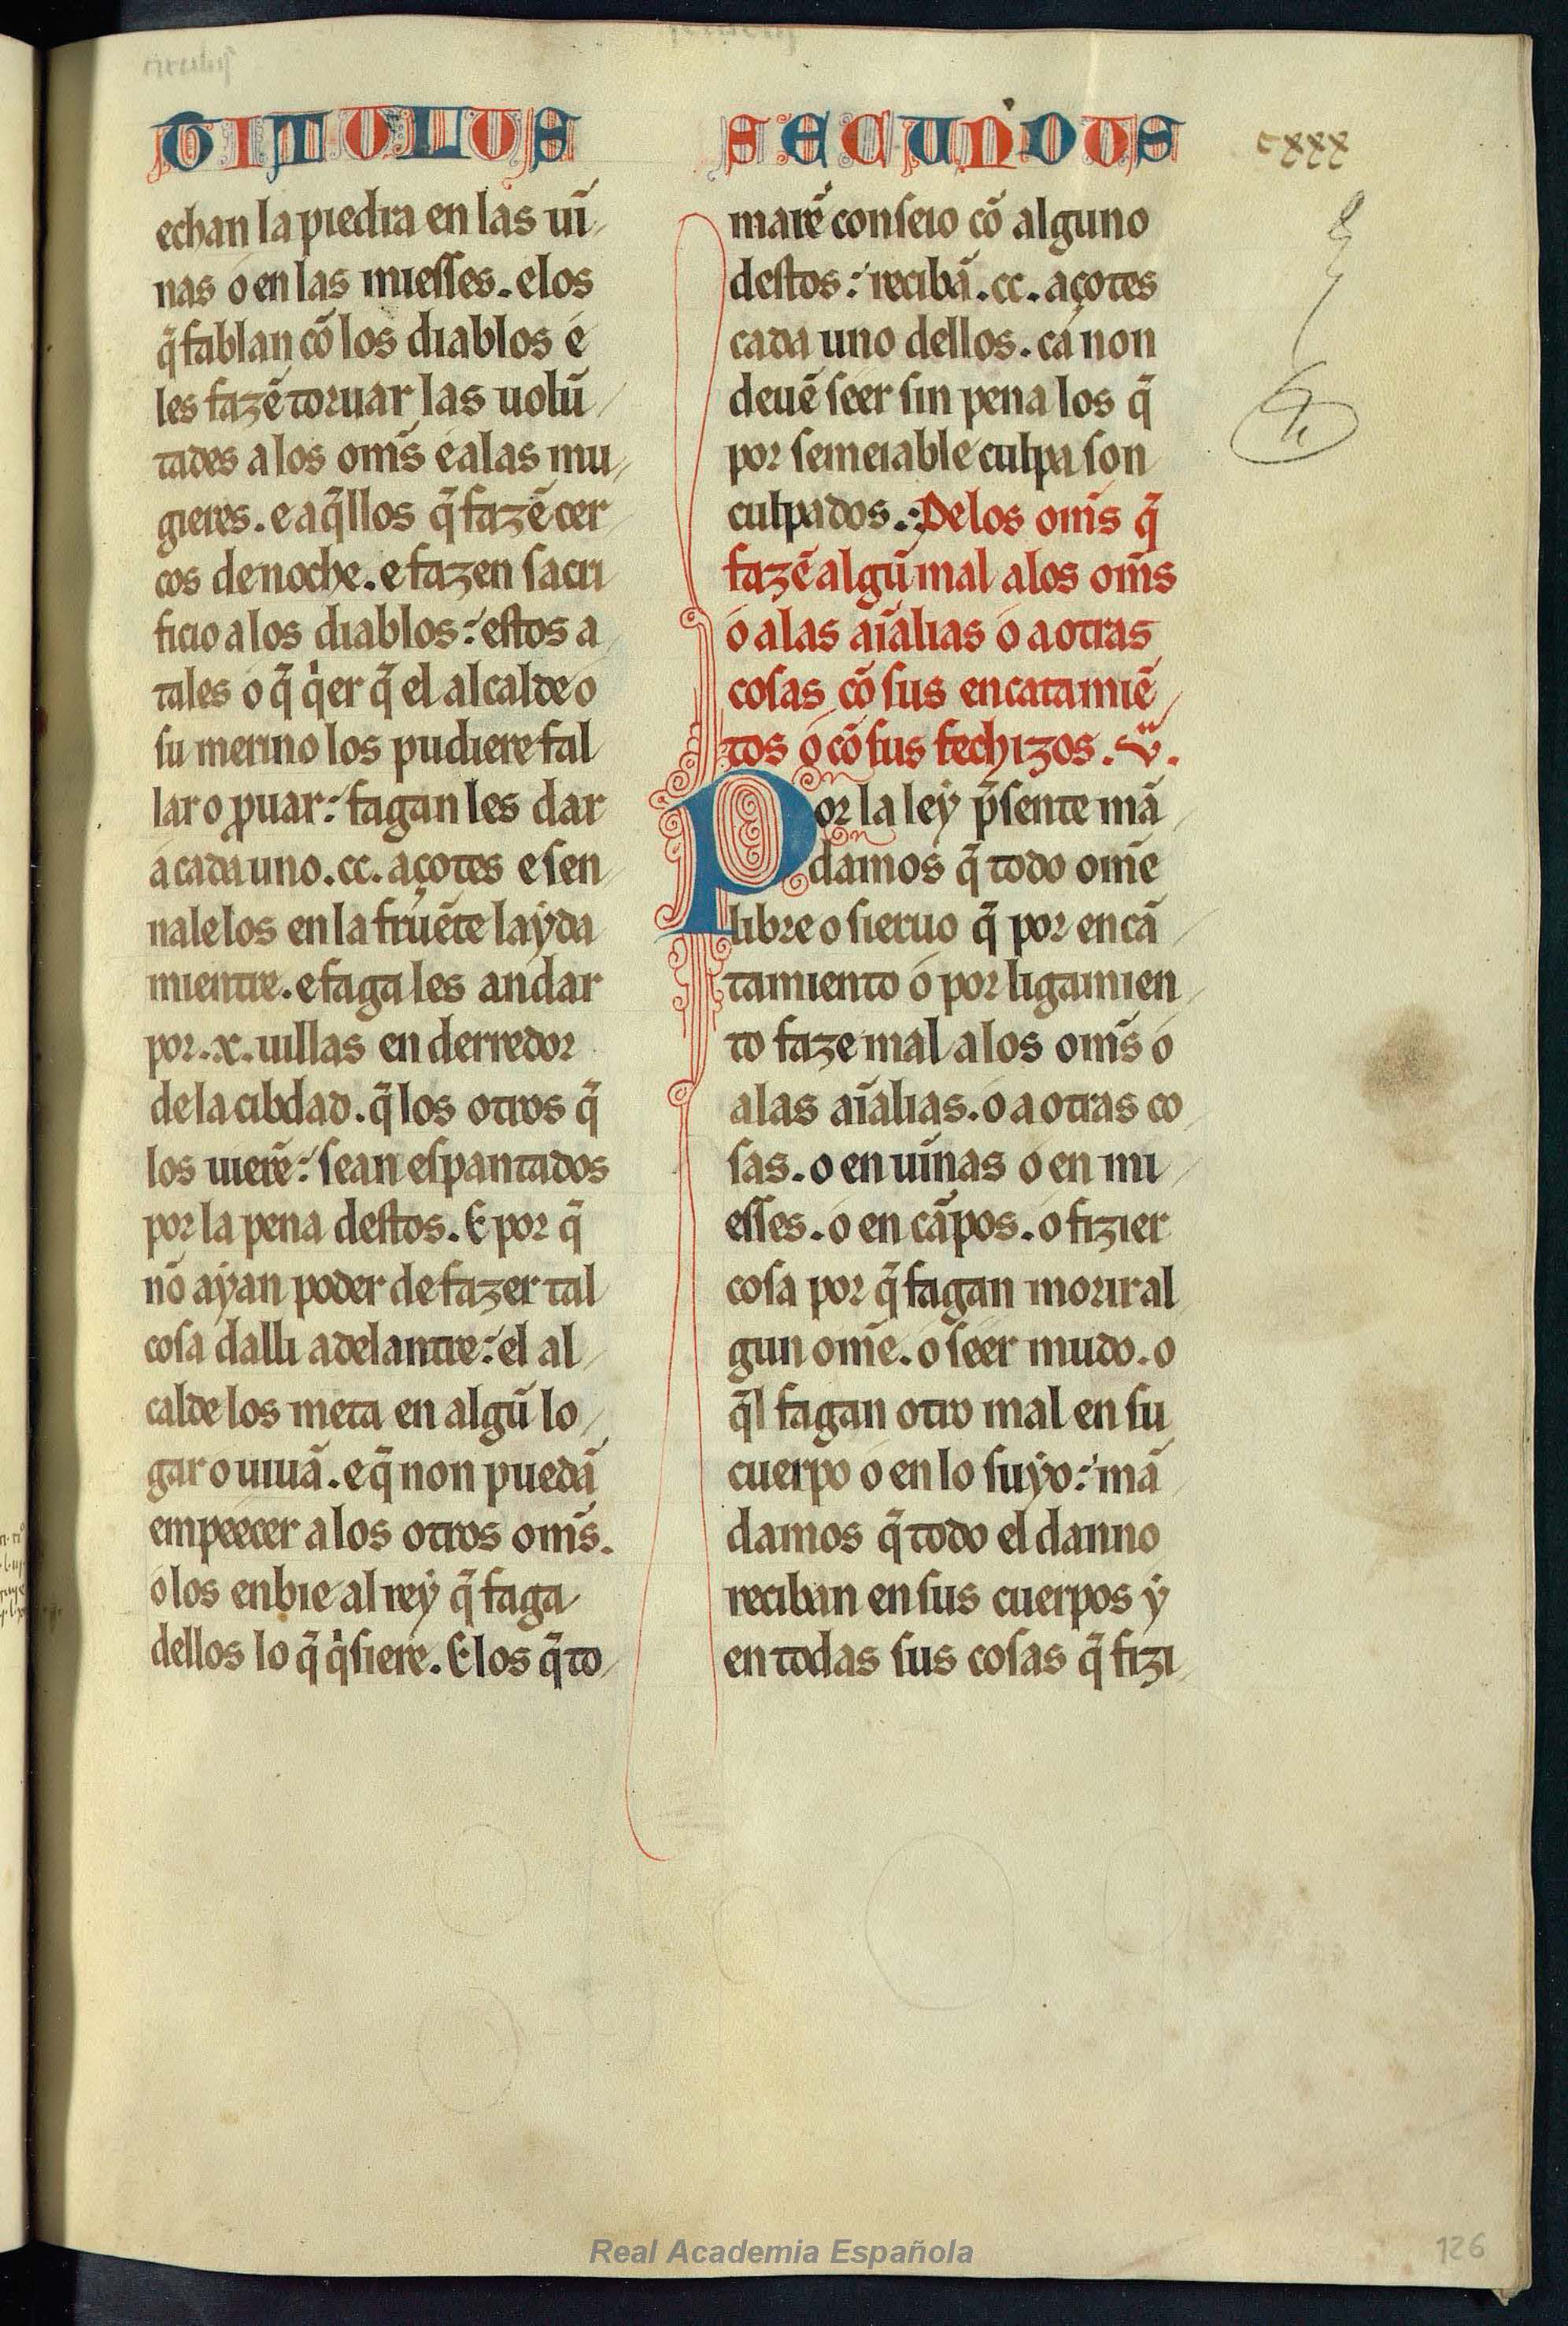 TITULUS
echan la piedra en las uĩ
nas o en las miesses. e los
q̃ fablan cõ los diablos e
les fazẽ toruar las uolũ
tades a los om̃s e a las mu
gieres. e aq̃llos q̃ fazẽ cer
cos de noche. e fazen sacri
ficio a los diablos: estos a
tales o q̃ q̇er q̃ el alcalde o
su merino los pudiere fal
lar o ꝓuar: fagan les dar
a cada uno .cc. açotes e sen
nalelos en la fruẽte layda
mientre. e faga les andar
por .x. uillas en derredor
de la cibdad. q̃ los otros q̃
los uierẽ: sean espantados
por la pena destos. E por q̃
nõ ayan poder de fazer tal
cosa dalli adelantre: el al
calde los meta en algũ lo
gar o uiuã. e q̃ non puedã
empeecer a los otros om̃s.
o los enbie al rey q̃ faga
dellos lo q̃ q̇siere. E los q̃ to
SECUNDUS
marẽ conseio cõ alguno
destos: recibã .cc. açotes
cada uno dellos. ca non
deuẽ seer sin pena los q̃
por semeiable culpa son
culpados. De los om̃s q̃
fazẽ algũ mal a los om̃s
o a las aĩalias o a otras
cosas cõ sus encatamiẽ
tos o cõ sus fechizos. v.
Por la ley p̃sente mã
damos q̃ todo om̃e
libre o sieruo q̃ por encã
tamiento o por ligamien
to faze mal a los om̃s o
a las aĩalias. o a otras co
sas. o en uĩnas o en mi
esses. o en cãpos. o fizier
cosa por q̃ fagan morir al
gun om̃e. o seer mudo. o
q̃l fagan otro mal en su
cuerpo o en lo suyo: mã
damos q̃ todo el danno
reciban en sus cuerpos y
en todas sus cosas q̃ fizi
cxxx
126
Real Academia Española